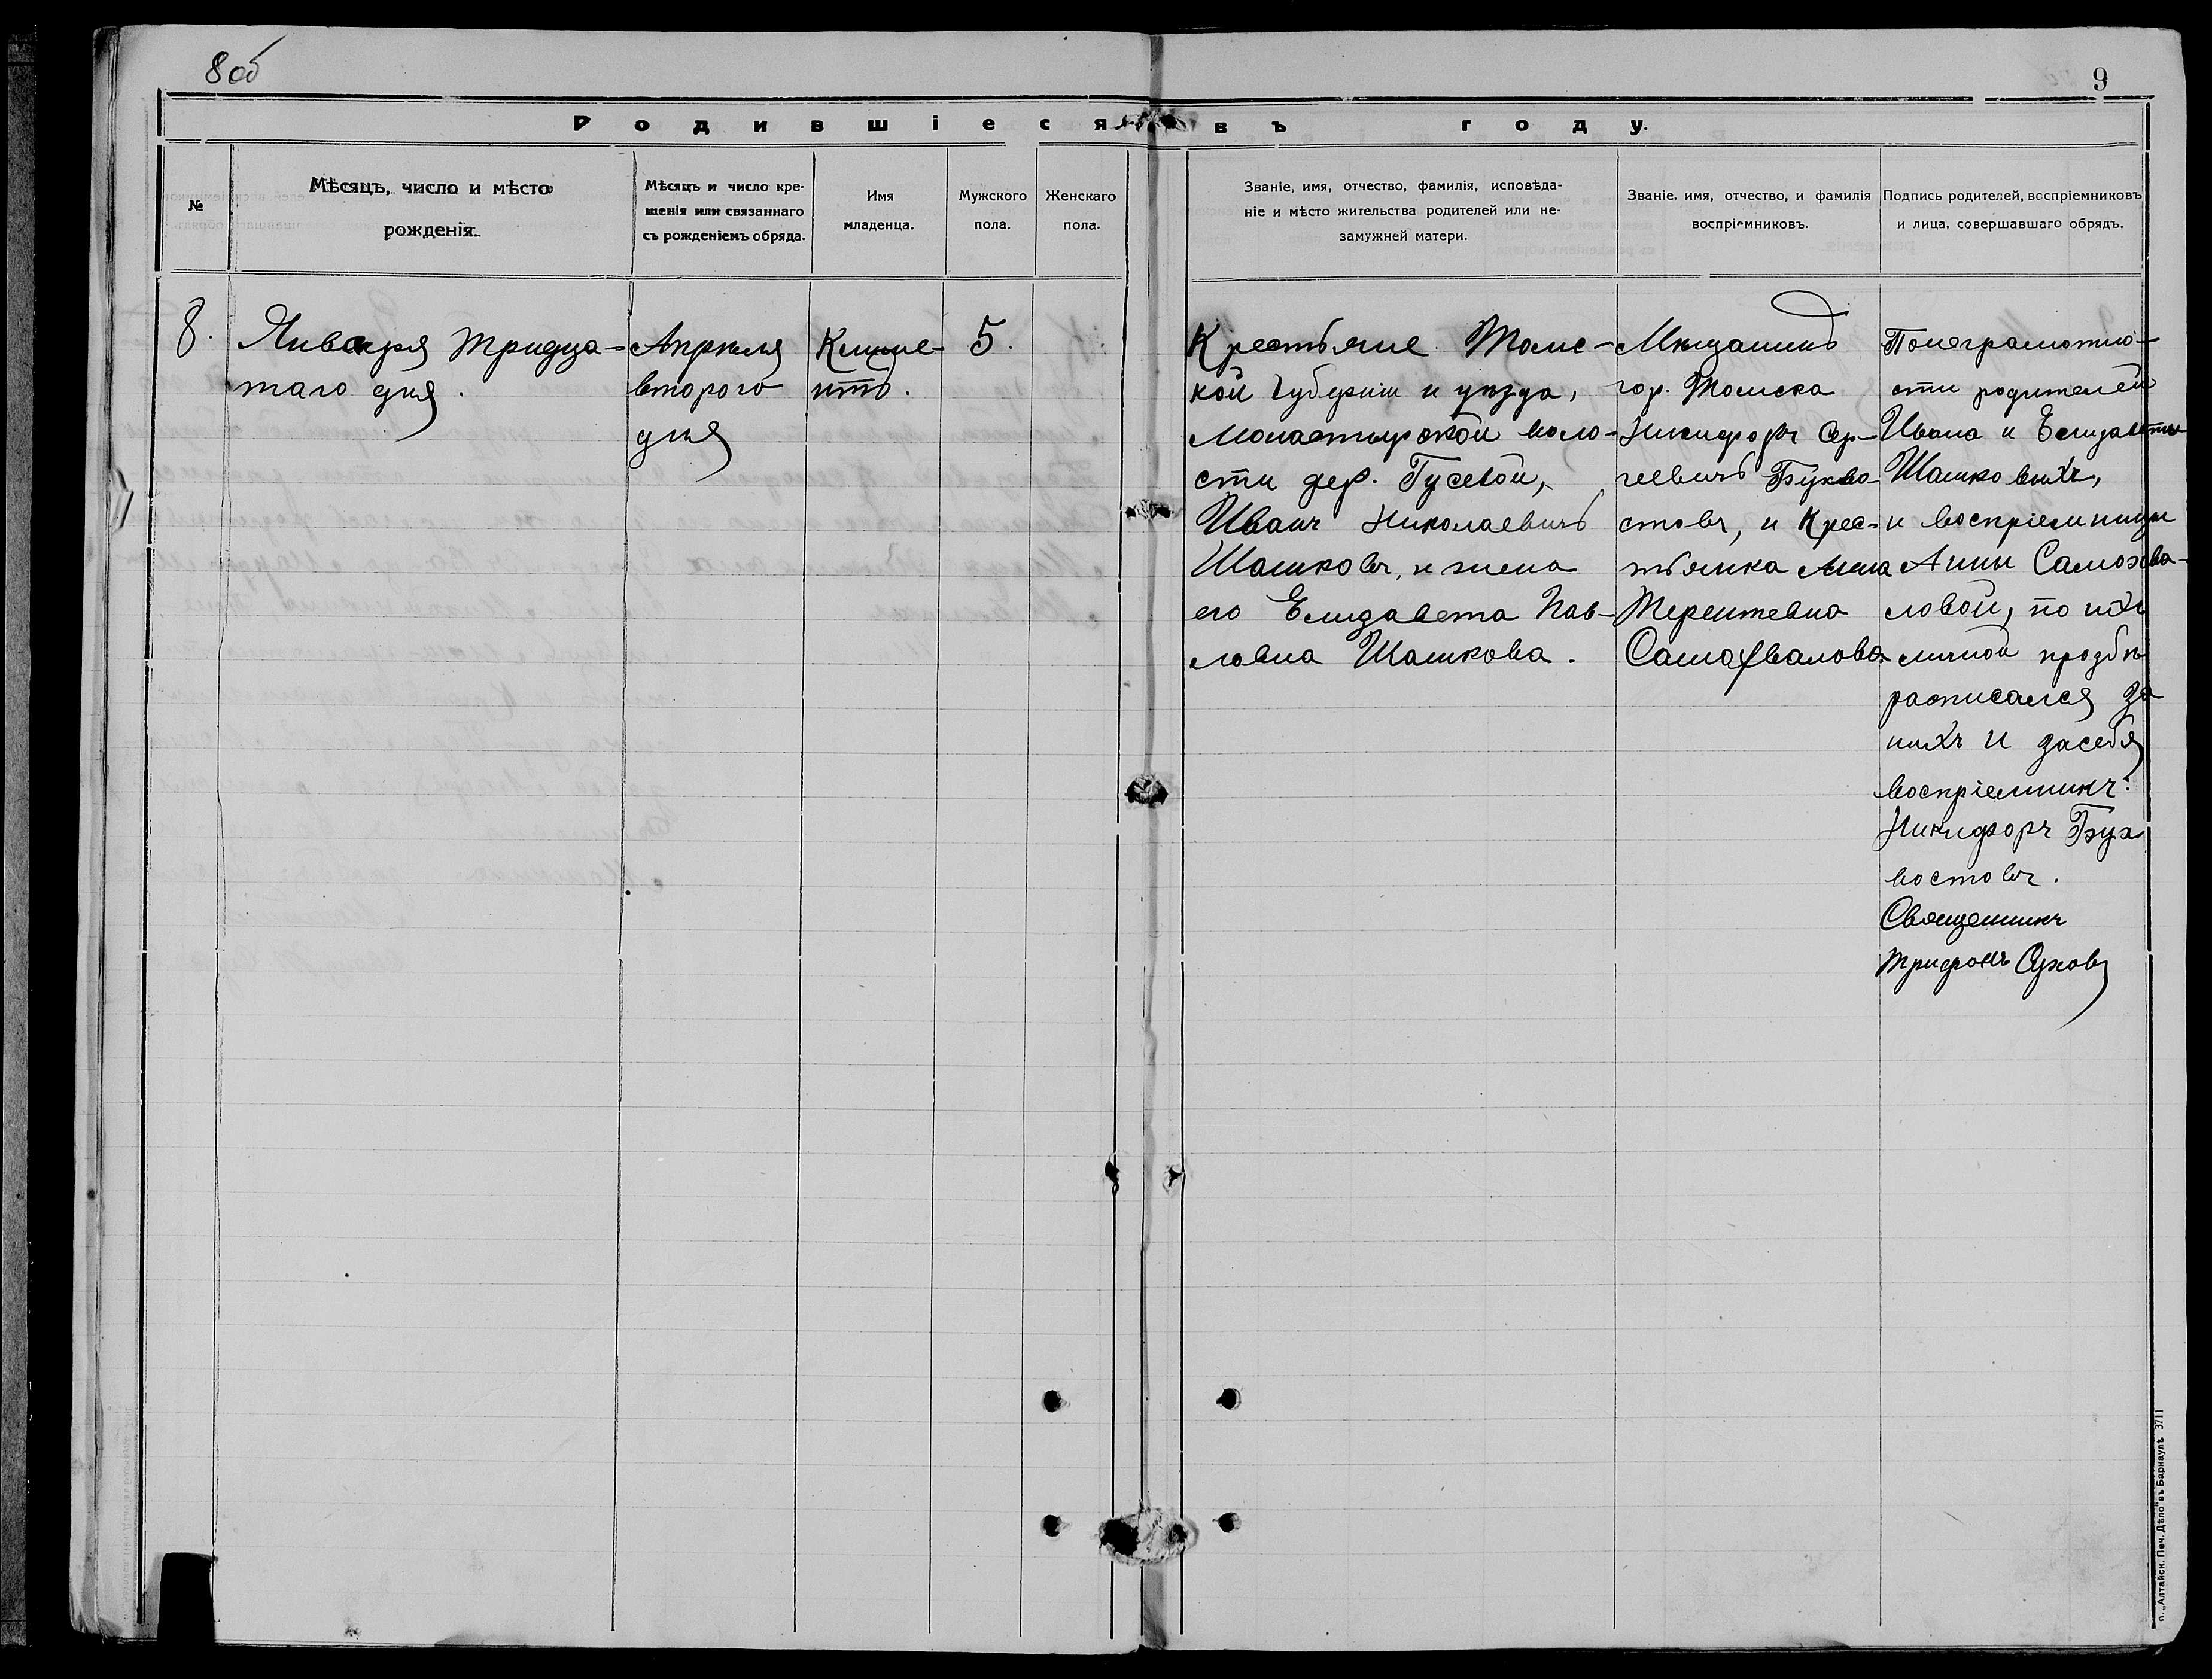 8 об
9
Родившіеся въ году.
№
Мѣсяцъ, число и мѣсто
рожденія.
Мѣсяцъ и число кре-
щенія или связаннаго
съ рожденіемъ обряда.
Имя
младенца.
Мужского
пола.
Женскаго
пола.
Званіе, имя, отчество, фамилія, исповѣда-
ніе и мѣсто жительства родителей или не-
замужней матери.
Званіе, имя, отчество, и фамилія
воспріемниковъ.
Подпись родителей, воспріемниковъ
и лица, совершавшаго обрядъ.
8.
Января тридца-
таго дня.
Апрѣля
второго
дня
Климе-
нтъ.
5.
Крестьяне Томс-
кой губерніи и уѣзда,
Монастырской воло-
сти дер. Гусевой,
Иванъ Николаевичъ
Шашковъ, и жена
его Елизавета Пав-
ловна Шашкова.
Мѣщанинъ
гор. Томска
Никифоръ Сер-
геевичъ Бухво-
стовъ, и Крес-
тьянка Анна
Терентевна
Самохвалова.
Понеграмотно-
сти родителей
Ивана и Елизаветы
Шашковыхъ,
и воспріемницы
Анны Самохва-
ловой, по ихъ
личной прозбѣ
расписался за
нихъ и засебя
воспріемникъ:
Никифоръ Бух
востовъ.
Священникъ
Трифонъ Сухов
п. „Алтайск. Печ. Дѣло" въ Барнаулѣ 3711